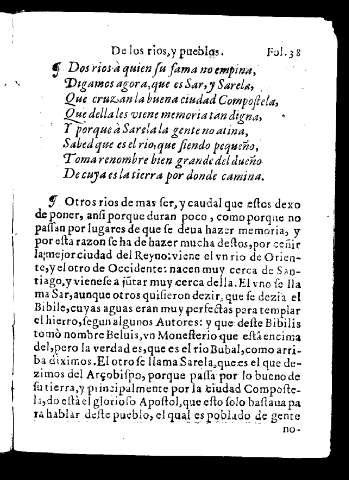 De los rios, y pueblos. Fol. 38
¶ Dos rios à quien su fama no empina,
Digamos agora, que es Sar, y Sarela,
Que cruzan la buena ciudad Compostela,
Que della les viene memoria tan digna,
Y porque à Sarela la gente no atina,
Sabed que es el rio, que siendo pequeño,
Toma renombre bien grande del dueño
De cuya es la tierra por donde camina.
¶ Otros rios de mas ser, y caudal que estos dexo
de poner, ansi porque duran poco, como porque no
passan por lugares de que se deua hazer memoria, y
por esta razon se ha de hazer mucha destos, por ceñir
la mejor ciudad del Reyno: viene el vn rio de Orien-
te, y el otro de Occidente: nacen muy cerca de San-
tiago, y vienese a jũtar muy cerca della. El vno se lla
ma Sar, aunque otros quisieron dezir, que se dezia el
Bibile, cuyas aguas eran muy perfectas para templar
el hierro, segun algunos Autores: y que deste Bibilis
tomò nombre Beluis, vn Monesterio que está encima
del, pero la verdad es, que es el rio Bubal, como arri-
ba diximos. El otro se llama Sarela, que es el que de-
zimos del Arçobispo, porque passa por lo bueno de
su tierra, y principalmente por la ciudad Composte-
la, do està el glorioso Apostol, que esto solo bastaua pa
ra hablar deste pueblo, el qual es poblado de gente
no-